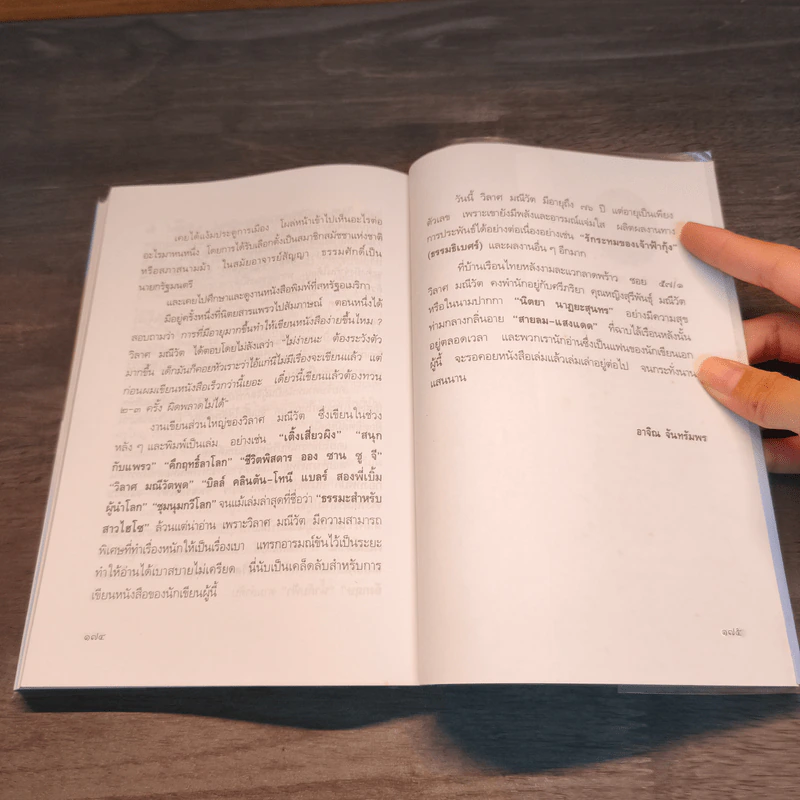 เคยได้แง้มประตูการเมือง โผล่หน้าเข้าไปเห็นอะไรต่อ
อะไรมาหนหนึ่ง โดยการได้รับเลือกตั้งเป็นสมาชิกสมัชชาแห่งชาติ
หรือสภาสนามม้า ในสมัยอาจารย์สัญญา ธรรมศักดิ์เป็น
นายกรัฐมนตรี
และเคยไปศึกษาและดูงานหนังสือพิมพ์ที่สหรัฐอเมริกา
มีอยู่ครั้งหนึ่งที่นิตยสารแพรวไปสัมภาษณ์ ตอนหนึ่งได้
สอบถามว่า การที่มีอายุมากขึ้นทำให้เขียนหนังสือง่ายขึ้นไหม ?
วิลาศ มณีวัต ได้ตอบโดยไม่ลังเลว่า "ไม่ง่ายนะ ต้องระวังตัว
มากขึ้น เด็กมันก็คอยหัวเราะว่าไอ้แก่นี่ไม่มีเรื่องจะเขียนแล้ว แต่
ก่อนผมเขียนหนังสือเร็วกว่านี้เยอะ เดี๋ยวนี้เขียนแล้วต้องทวน
๒-๓ ครั้ง ผิดพลาดไม่ได้"
งานเขียนส่วนใหญ่ของวิลาศ มณีวัต ซึ่งเขียนในช่วง
หลัง ๆ และพิมพ์เป็นเล่ม อย่างเช่น "เติ้งเสี่ยวผิง" "สนุก
กับแพรว" "ตึกฤทธิ์ลาโลก" "ชีวิตพิสดาร ออง ซาน ซู จี"
"วิลาศ มณีวัตพูด" "บิลล์ คลินตัน-โทนี แบลร์ สองพี่เบิ้ม
ผู้นำโลก" "ชุมนุมกวีโลก" จนแม้เล่มล่าสุดที่ชื่อว่า "ธรรมะสำหรับ
สาวไฮโซ" ล้วนแต่น่าอ่าน เพราะวิลาศ มณีวัต มีความสามารถ
พิเศษที่ทำเรื่องหนักให้เป็นเรื่องเบา แทรกอารมณ์ขันไว้เป็นระยะ
ทำให้อ่านได้เบาสบายไม่เครียด นี่นับเป็นเคล็ดลับสำหรับการ
เขียนหนังสือของนักเขียนผู้นี้
๑๗๔
วันนี้ วิลาศ มณีวัต มีอายุถึง ๗๖ ปี แต่อายุเป็นเพียง
ตัวเลข เพราะเขายังมีพลังและอารมณ์แจ่มใส ผลิตผลงานทาง
การประพันธ์ได้อย่างต่อเนื่องอย่างเช่น "รักระทมของเจ้าฟ้ากุ้ง"
(ธรรมธิเบศร์) และผลงานอื่น ๆ อีกมาก
ที่บ้านเรือนไทยหลังงามละแวกลาดพร้าว ซอย ๕๗/๑
วิลาศ มณีวัต คงพำนักอยู่กับศรีภริยา คุณหญิงสุรีพันธุ์ มณีวัต
หรือในนามปากกา "นิตยา นาฏยะสุนทร" อย่างมีความสุข
ท่ามกลางกลิ่นอาย "สายลม-แสงแดด" ที่ฉาบไล้เรือนหลังนั้น
อยู่ตลอดเวลา และพวกเรานักอ่านซึ่งเป็นแฟนของนักเขียนเอก
ผู้นี้ จะรอคอยหนังสือเล่มแล้วเล่มเล่าอยู่ต่อไป จนกระทั่งนาน
แสนนาน
อาจิณ จันทรัมพร
๑๗๕